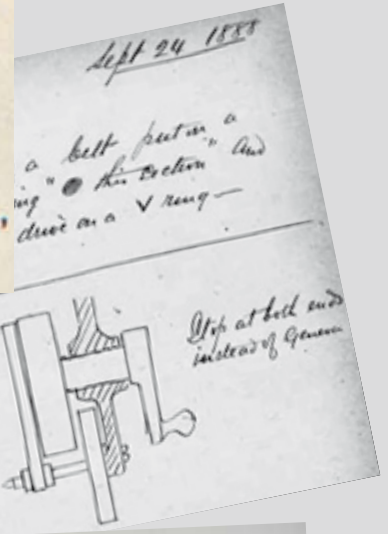 Sept 24 1888
a belt put in a
ing" this section" and
drive on a V ring—
Stop at both ends
instead of Geneva